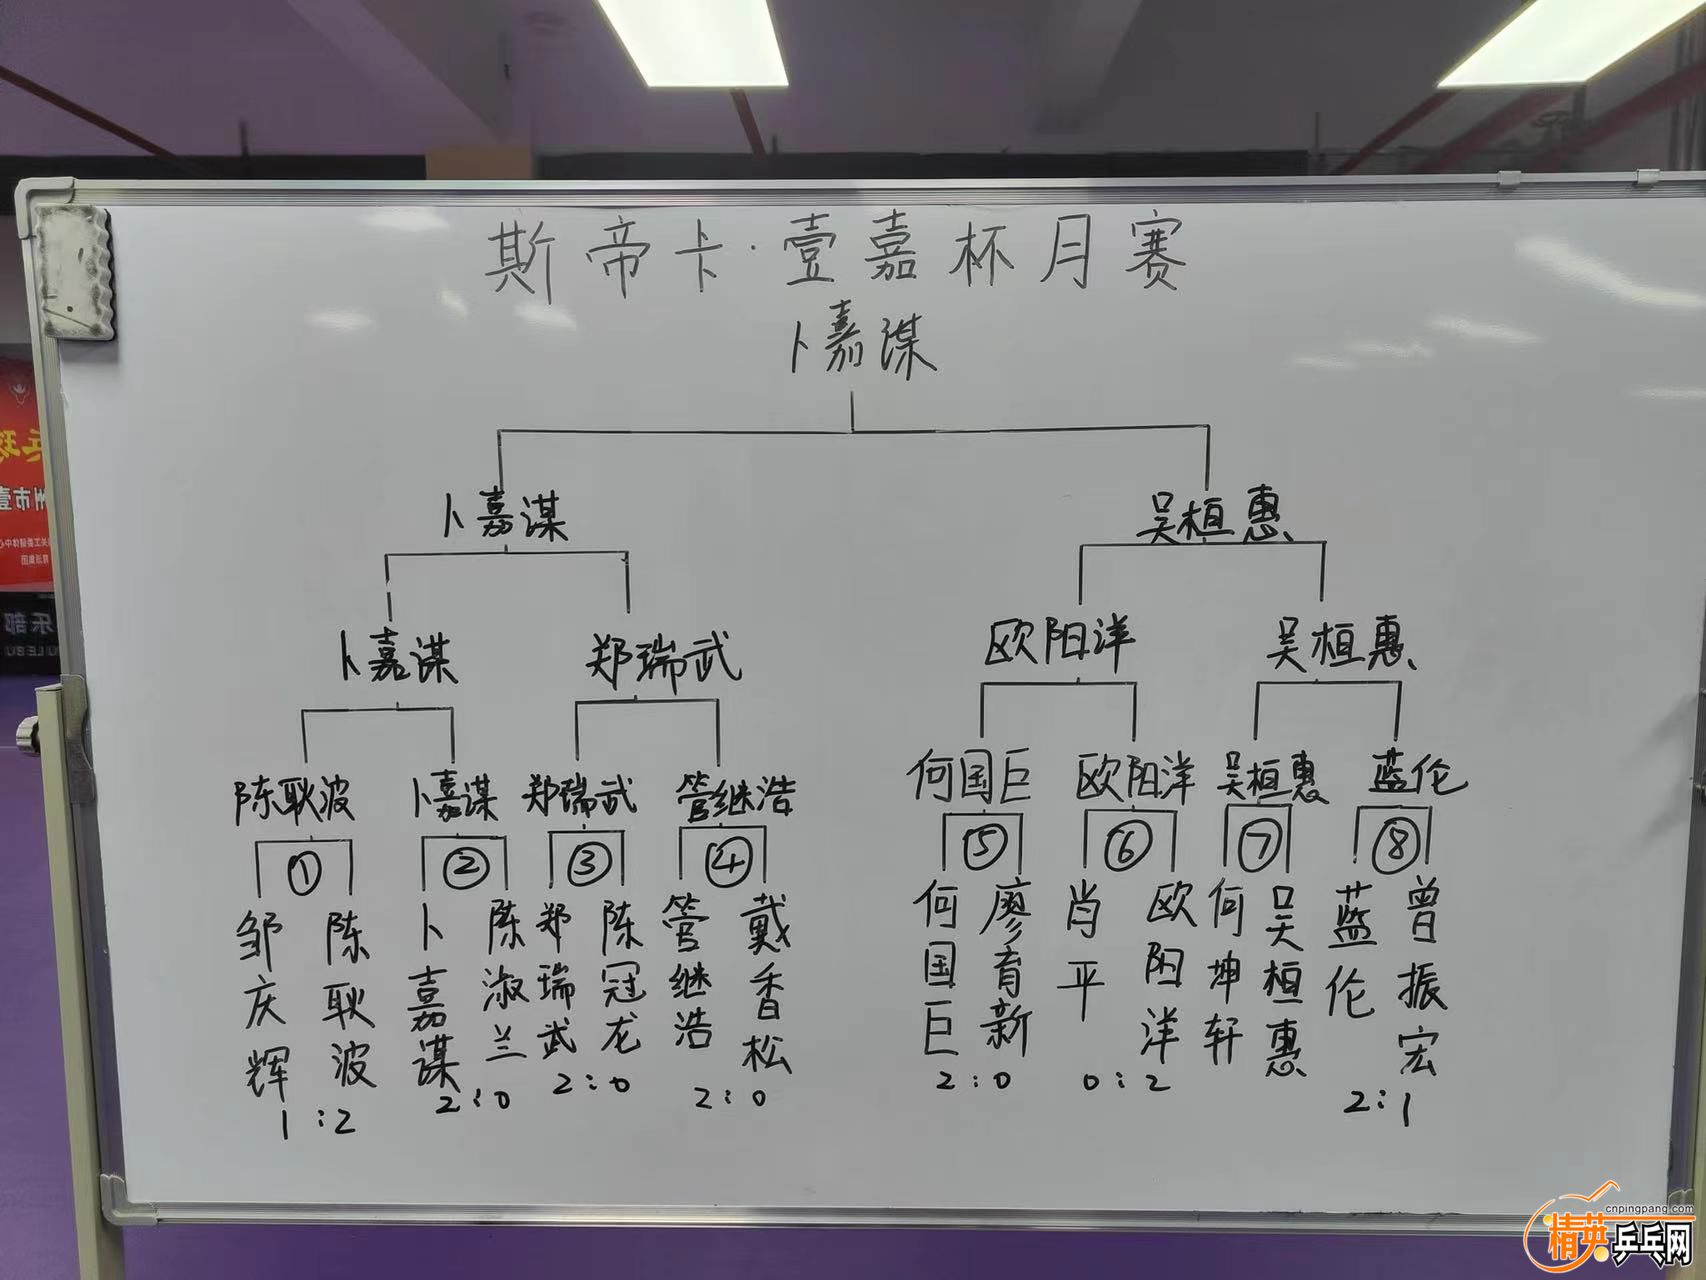 斯帝卡·壹嘉杯月赛
卜嘉谋
卜嘉谋 吴桓惠
卜嘉谋 郑瑞武 欧阳洋 吴桓惠
陈耿波 卜嘉谋 郑瑞武 管继浩 何国巨 欧阳洋 吴桓惠 蓝伦
① ② ③ ④ ⑤ ⑥ ⑦ ⑧
邹庆辉 陈耿波 卜嘉谋 陈淑兰 郑瑞武 陈冠龙 管继浩 戴香松 何国巨 廖育新 肖平 欧阳洋 何坤轩 吴桓惠 蓝伦 曾振宏
1:2 2:0 2:0 2:0 2:0 0:2 2:1
cnpingpang.com
精英乒乓网